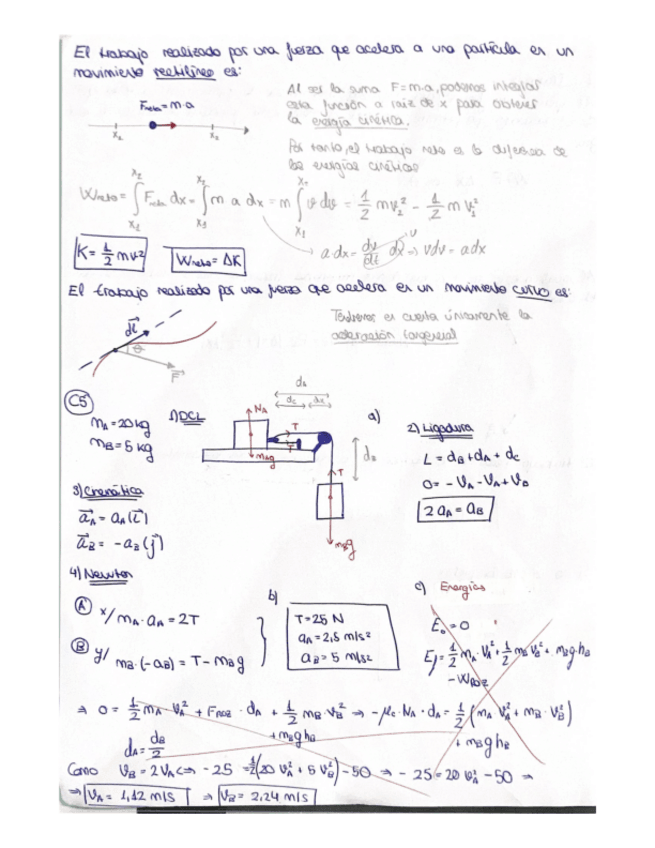 El trabajo realizado por una fuerza que acelera a una partícula en un
movimiento rectilíneo es:
Al ser la suma F=m·a, podemos integrar
esta función a raiz de x para obtener
la energía cinética.
Fneta=m·a
x₁ x₂
Por tanto, el trabajo neto es la diferencia de
las energías cinéticas
Wneto = ∫ Fneta dx = ∫ m a dx = m ∫ v dv = 1/2 m v₂² - 1/2 m v₁²
a·dx = dv/dt dx => vdv = adx
K = 1/2 mv²
Wneto = ΔK
El trabajo realizado por una fuerza que acelera en un movimiento curvo es:
Tendremos en cuenta únicamente la
aceleración tangencial
dl
θ
F
C5
mA = 20 kg
mB = 5 kg
1) DCL
dA
dc dx
NA
T
T
mAg
dB
T
mBg
a)
2) Ligadura
L = dB + dA + dc
0 = - VA - VA + VB
2 aA = aB
3) Cinemática
aA = aA (i)
aB = -aB (j)
4) Newton
A x/ mA · aA = 2T
B y/ mB · (-aB) = T - mBg
b)
T = 25 N
aA = 2,5 m/s²
aB = 5 m/s²
c) Energías
E₀ = 0
Ef = 1/2 mA · VA² + 1/2 mB VB² + mB g hB
- WROZ
=> 0 = 1/2 mA · VA² + FROZ · dA + 1/2 mB · VB² => -μc · NA · dA = 1/2 (mA VA² + mB · VB²)
+ mB g hB
+ mB g hB
dA = dB/2
Como VB = 2VA <=> -25 = 1/2 (20 VA² + 5 VB²) - 50 => -25 = 20 VA² - 50 =>
=> VA = 1,12 m/s => VB = 2,24 m/s